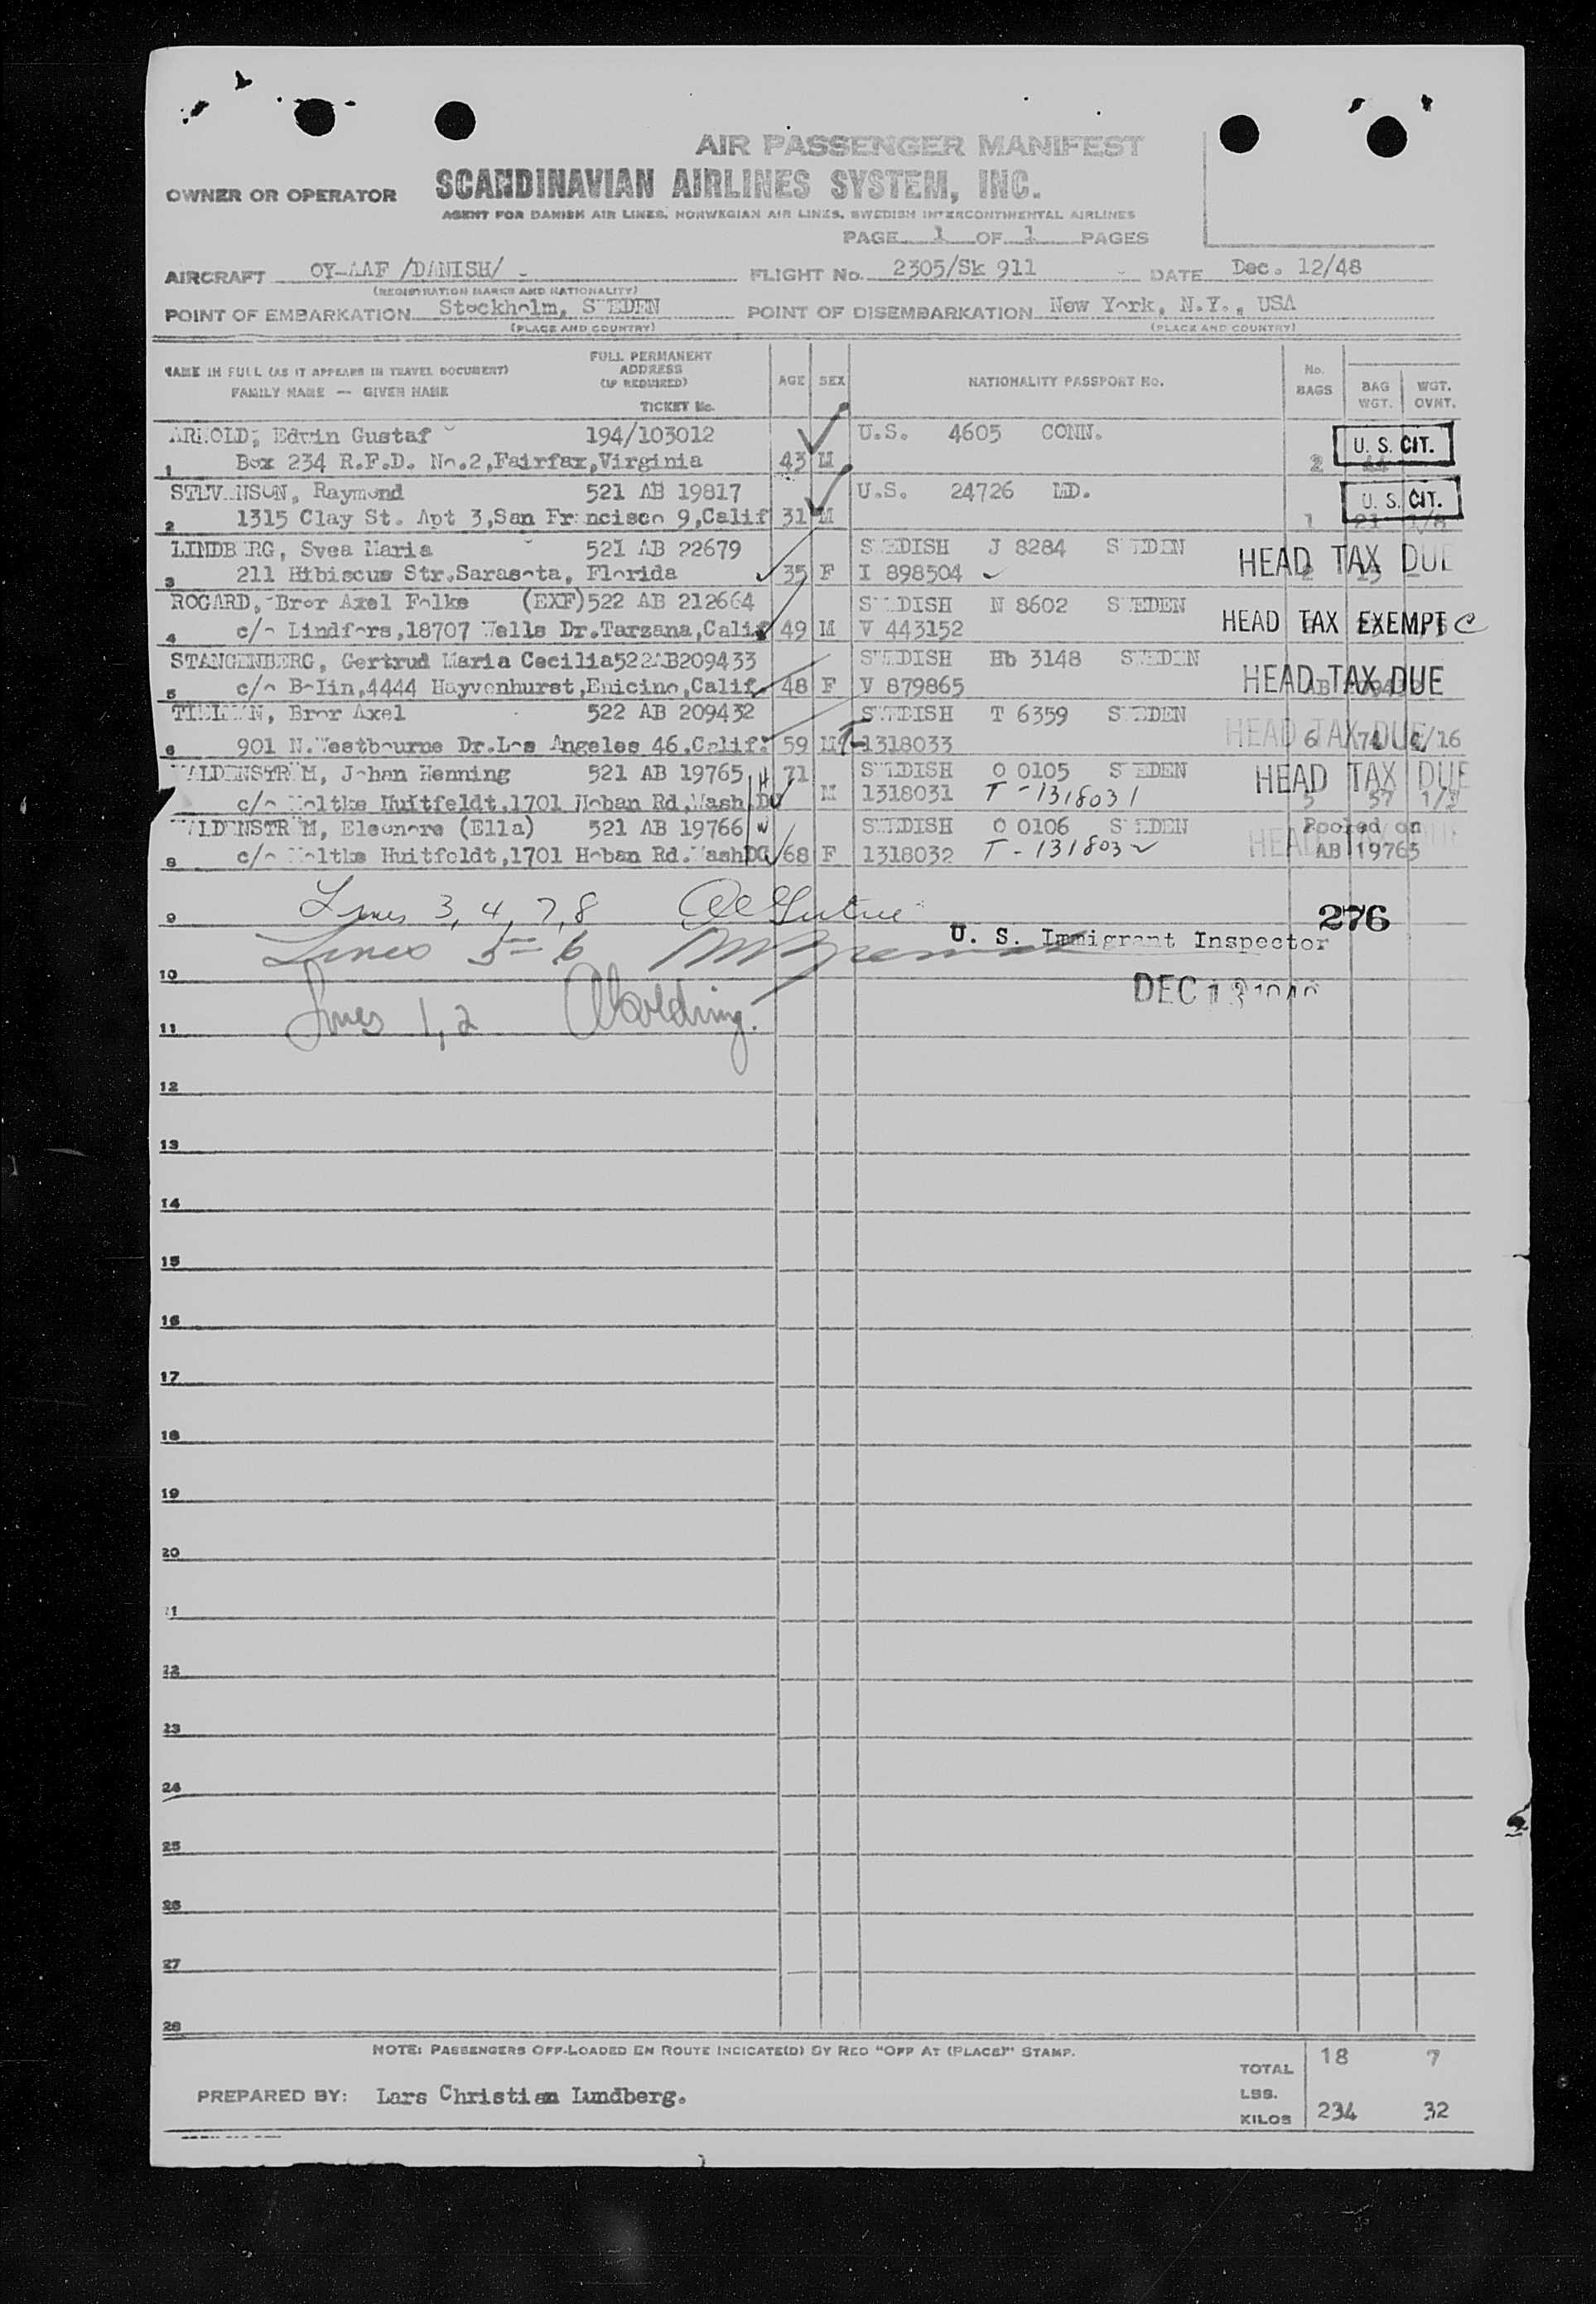 AIR PASSENGER MANIFEST
OWNER OR OPERATOR SCANDINAVIAN AIRLINES SYSTEM, INC.
AGENT FOR DANISH AIR LINES, NORWEGIAN AIR LINES, SWEDISH INTERCONTINENTAL AIRLINES
PAGE 1 OF 1 PAGES
AIRCRAFT OY-AAF /DANISH/ FLIGHT No. 2305/Sk 911 DATE Dec. 12/48
(REGISTRATION MARKS AND NATIONALITY)
POINT OF EMBARKATION Stockholm, SWEDEN POINT OF DISEMBARKATION New York, N.Y., USA
(PLACE AND COUNTRY) (PLACE AND COUNTRY)
NAME IN FULL (AS IT APPEARS IN TRAVEL DOCUMENT) FAMILY NAME — GIVEN NAME
FULL PERMANENT ADDRESS (IF REQUIRED) TICKET No.
AGE SEX NATIONALITY PASSPORT No. No. BAGS BAG WGT. WGT. OVNT.
ARNOLD, Edwin Gustaf 194/103012 U.S. 4605 CONN. U. S. CIT.
1 Box 234 R.F.D. No.2,Fairfax,Virginia 43 M 2 44
STEVENSON, Raymond 521 AB 19817 U.S. 24726 MD. U. S. CIT.
2 1315 Clay St. Apt 3,San Francisco 9,Calif 31 M 1 21
LINDBERG, Svea Maria 521 AB 22679 SWEDISH J 8284 SWEDEN HEAD TAX DUE
3 211 Hibiscus Str.Sarasota, Florida 35 F I 898504
ROGARD, Bror Axel Folke (EXF)522 AB 212664 SWEDISH N 8602 SWEDEN
4 c/o Lindfors,18707 Wells Dr.Tarzana,Calif 49 M V 443152 HEAD TAX EXEMPT C
STANGENBERG, Gertrud Maria Cecilia522AB209433 SWEDISH Hb 3148 SWEDEN
5 c/o Bolin,4444 Hayvenhurst,Enicino,Calif. 48 F V 879865 HEAD TAX DUE
TILLMAN, Bror Axel 522 AB 209432 SWEDISH T 6359 SWEDEN
6 901 N.Westbourne Dr.Los Angeles 46,Calif. 59 M T-1318033 HEAD TAX DUE 6 74 /16
WALDENSTRÖM, Johan Henning 521 AB 19765 H 71 SWEDISH O 0105 SWEDEN HEAD TAX DUE
c/o Moltke Huitfeldt,1701 Hoban Rd.Wash DC M 1318031 T-1318031 5 57 1/2
WALDENSTRÖM, Eleonore (Ella) 521 AB 19766 W SWEDISH O 0106 SWEDEN Pooled on
8 c/o Moltke Huitfeldt,1701 Hoban Rd.Wash DC 68 F 1318032 T-1318032 HEAD TAX DUE AB 19765
9 Lines 3, 4, 7, 8 276
Lines 5-6 U. S. Immigrant Inspector
10 DEC 13
11 Lines 1, 2
12
13
14
15
16
17
18
19
20
21
22
23
24
25
26
27
28
NOTE: PASSENGERS OFF-LOADED EN ROUTE INDICATE(D) BY RED "OFF AT (PLACE)" STAMP.
TOTAL 18 7
PREPARED BY: Lars Christian Lundberg. LBS.
KILOS 234 32